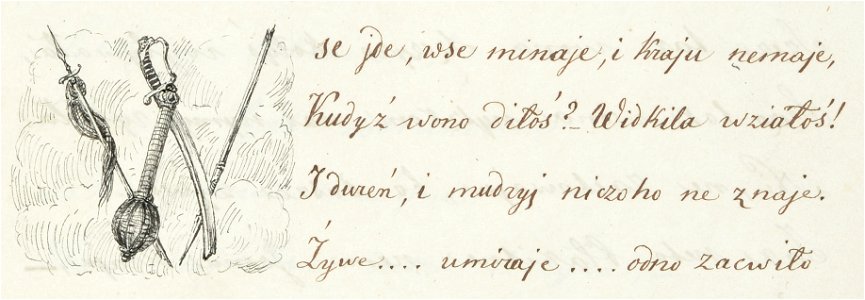 W se jde, wse minaje, i kraju nemaje,
Kudyź wono diłoś?_ Widkila wziałoś!
I dureń, i mudryj niczoho ne znaje.
Żywe.... umiraje .... odno zacwiło